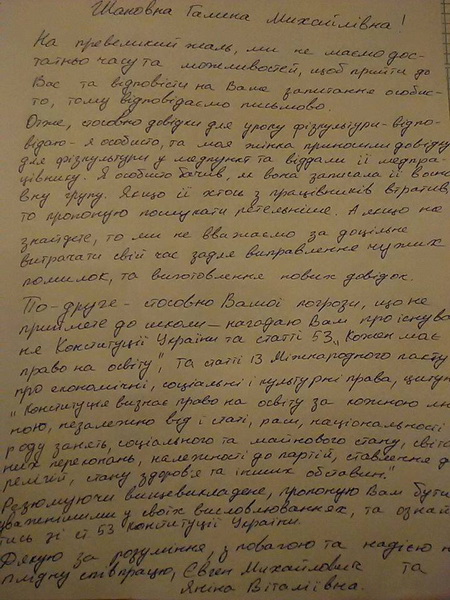 Шановна Галина Михайлівна!
На превеликий жаль, ми не маємо дос-
татньо часу та можливостей, щоб прийти до
Вас та відповісти на Ваше запитання особис-
то, тому відповідаємо письмово.
Отже, стосовно довідки для уроку фізкультури-відпо-
відаю-я особисто, та моя жінка приносили довідку
для фізкультури у медпункт та віддали її медпра-
цівнику. Я особисто бачив, як вона записала її в
вну групу. Якщо її хтось з працівників втратив,
то пропоную пошукати ретельніше. А якщо не
знайдете, то ми не вважаємо за доцільне
витрачати свій час задля виправлення чужих
помилок, та виготовлення нових довідок.
По-друге-стосовно Вашої погрози, що не
приймете до школи-нагадаю Вам про існува
ня Конституції України та статті 53 „Кожен має
право на освіту", та статті 13 Міжнародного пакту
про економічні, соціальні і культурні права, цитую
„Конституція визнає право на освіту за кожною лю
ною, незалежно від її статі, раси, національності
роду занять, соціального та майнового стану, світо
них переконань, належності до партій, ставлення до
релігії, стану здоров'я та інших обставин."
Резюмуючи вищевикладене, пропоную Вам бути
уважнішими у своїх висловлюваннях, та ознай
тись зі ст 53 конституції України.
Дякую за розуміння, з повагою та надією на
плідну співпрацю, Євген Михайлович та
Яніна Віталіївна.